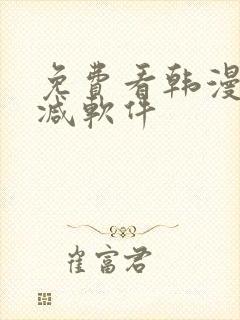 免費看韩漫
减軟件
崔富君